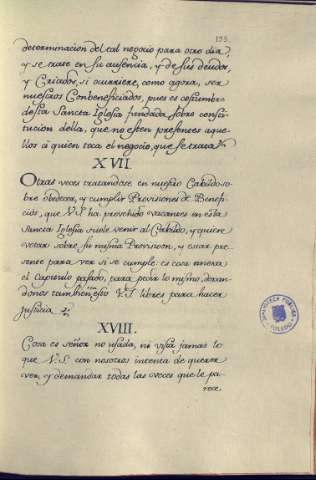 193
determinacion del tal negocio para otro dia,
y se trate en su ausencia, y de sus deudos,
y Criados, si ocurriere, como agora, ser
nuestros Conbeneficiados, pues es costumbre
desta Sancta Iglesia fundada sobre consti-
tucion della, que no esten presentes aque-
llos a quien toca el negocio, que se trata.
XVII.
Otras veces tratandose en nuestro Cabildo so-
bre obedecer, y cumplir Provisiones de Benefi-
cios, que V.S. ha provehido vacantes en esta
Sancta Iglesia suele venir al Cabildo, y quiere
votar sobre su misma Provision, y estar pre-
sente para ver si se cumple: es cosa conexa
al Capitulo pasado, para pedir lo mismo, dexan-
donos tambien en esto V.S. libres para hacer
justicia.
XVIII.
Cosa es señor no usada, ni vista jamas lo
que V.S. con nosotros intenta de querer
ver, y demandar todas las voces que le pa-
rece
BIBLIOTECA PUBLICA
TOLEDO